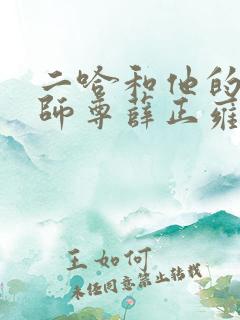 二哈和他的
師尊薛正雍
王如何
未经同意禁止转载